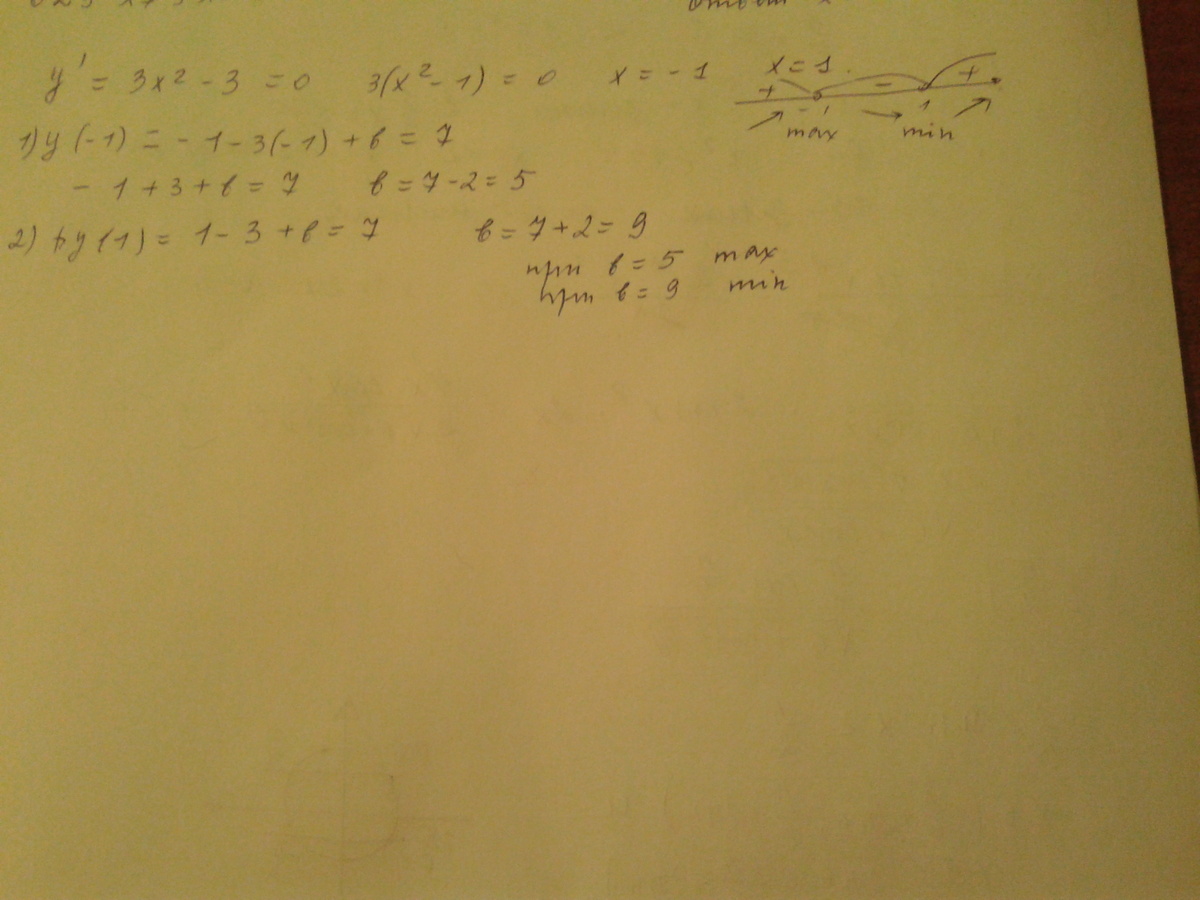 y' = 3x² - 3 = 0 3(x² - 1) = 0 x = -1 x = 1
+ - +
-1 1
max min
1) y(-1) = -1 - 3(-1) + в = 7
- 1 + 3 + в = 7 в = 7 - 2 = 5
2) y(1) = 1 - 3 + в = 7 в = 7 + 2 = 9
при в = 5 max
при в = 9 min